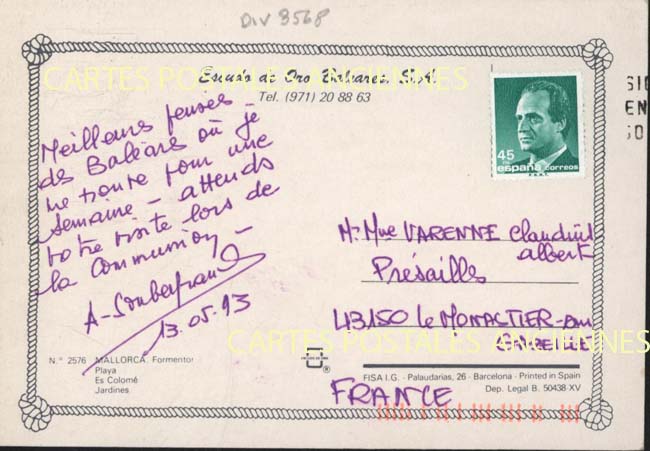 DIV 8568
Escudo de Oro Baleares, S.A.
CARTES POSTALES ANCIENNES
Tel. (971) 20 88 63
Meilleures pensées
des Baléares où je
me trouve pour une
semaine - attends
votre visite lors de
la Communion -
13.05.93
45
españa correos
Mr Mme VARENNE
albert
Présailles
43150 Le MONASTIER-sur
GAZEILLE
FRANCE
CARTES POSTALES ANCIENNES
N.º 2576 MALLORCA. Formentor
Playa
Es Colomé
Jardines
FISA I.G. - Palaudarias, 26 - Barcelona - Printed in Spain
Dep. Legal B. 50438 XV